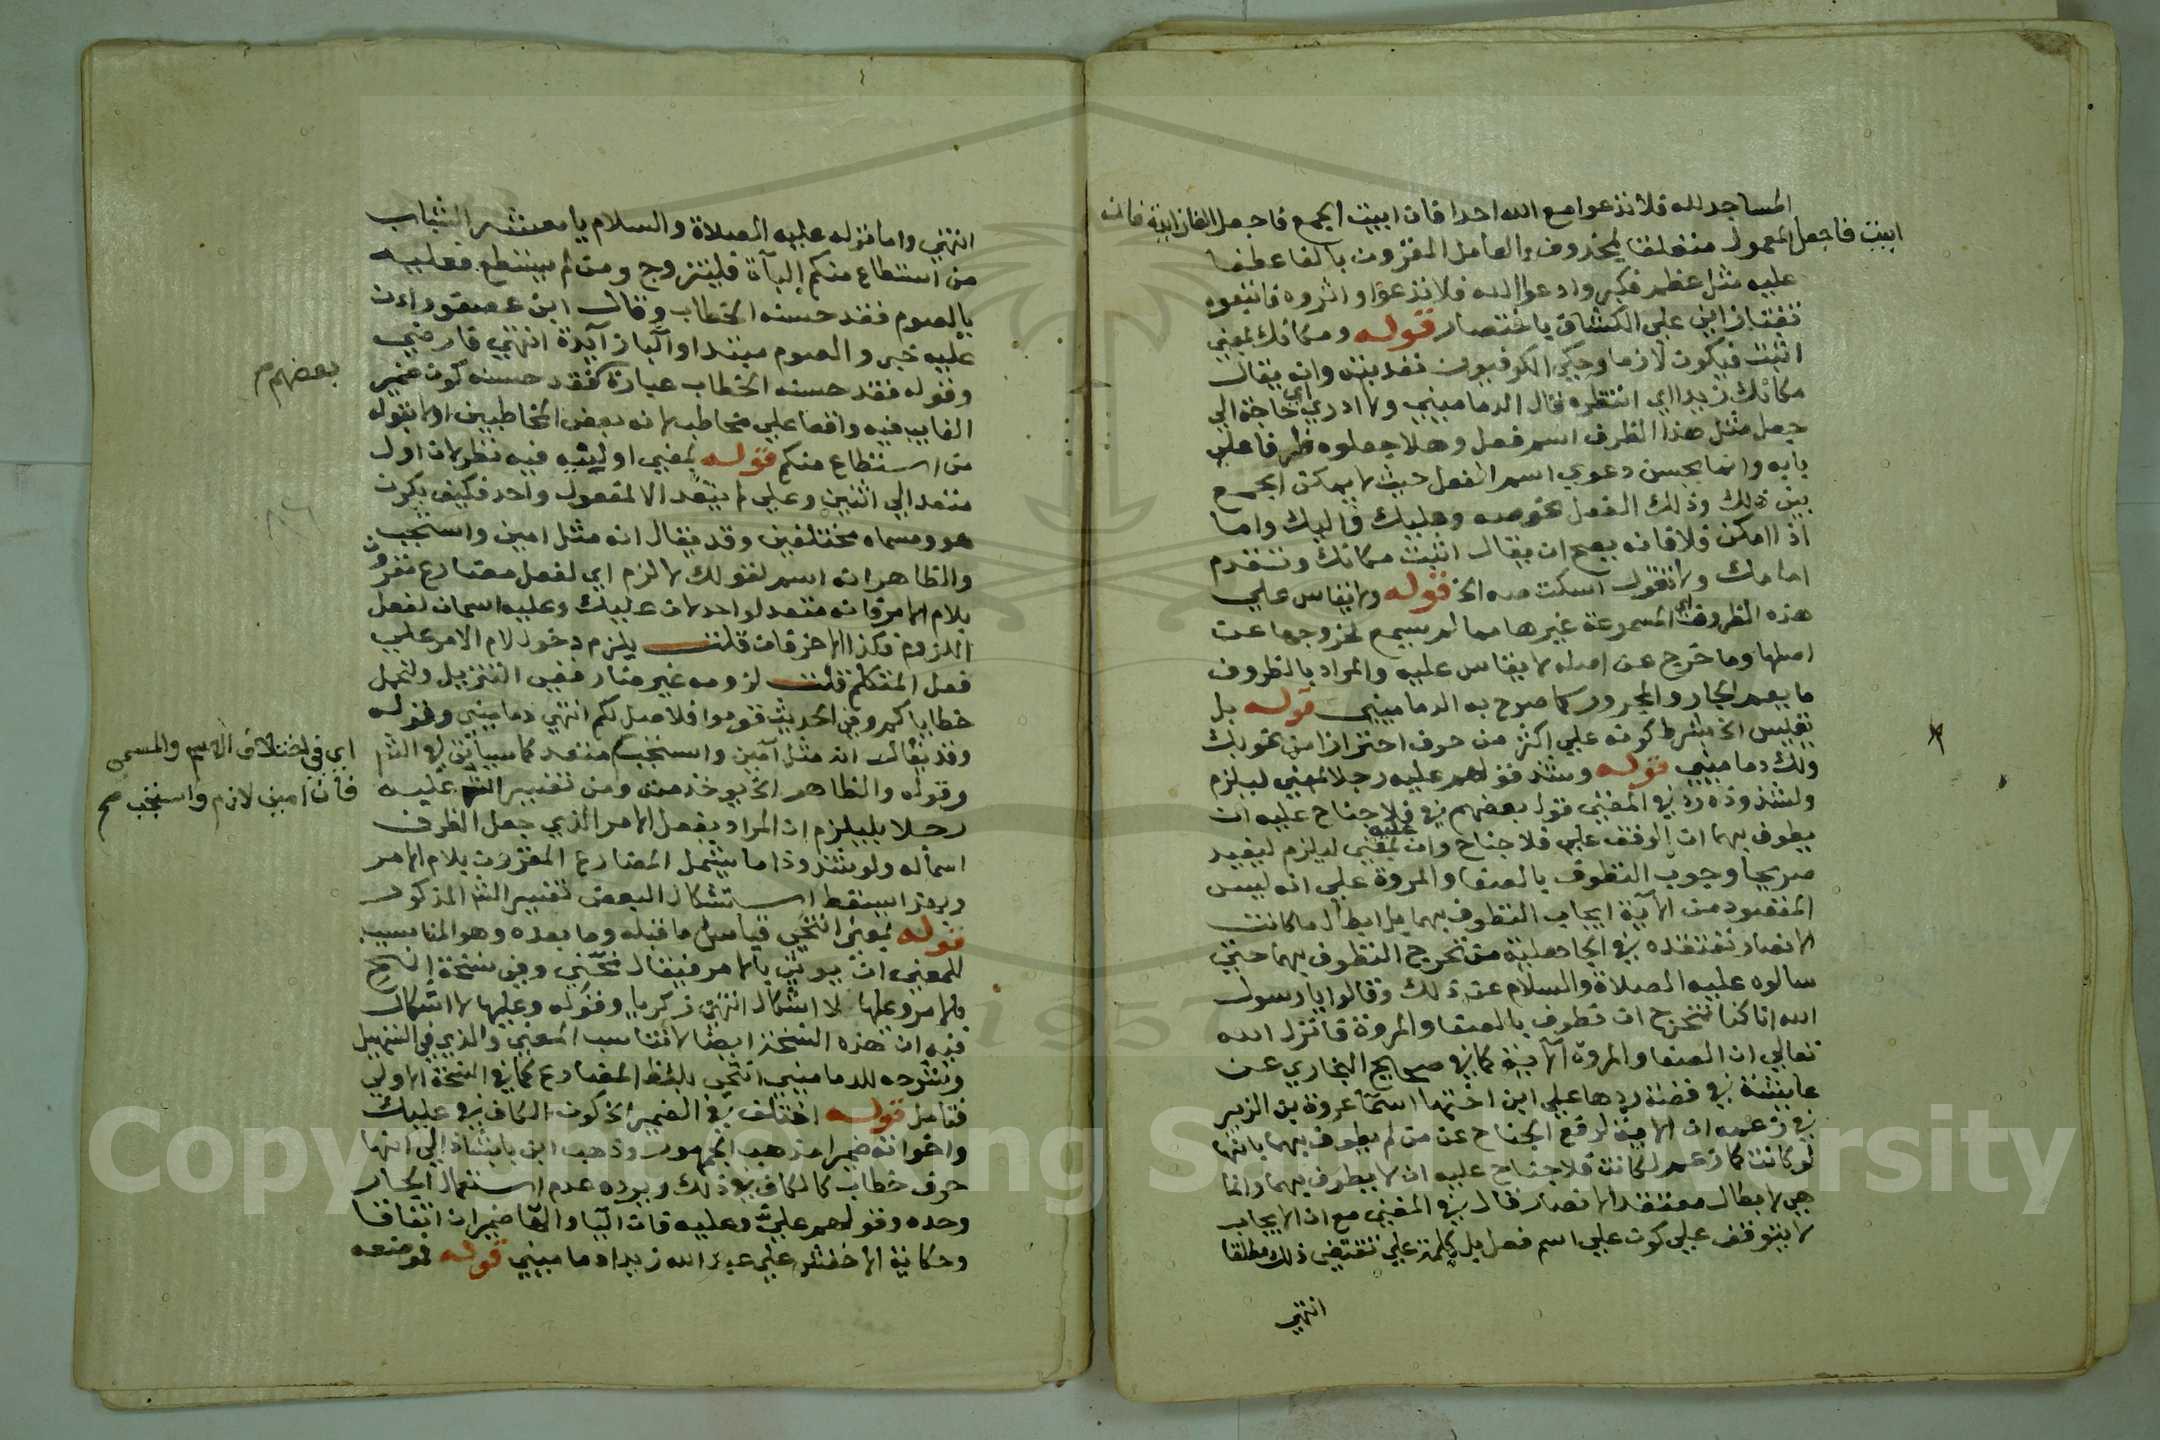 المساجد لله فلا تدعوا مع الله احدا فان ابيت الجمع فاجعل الفا زايدة فان
ابيت فاجعل المعمول متعلقا بمحذوف والعامل المقرون بالفا عطفا
عليه مثل عظم فكبر وادعوا الله فلا تدعوا واثروه فاتبعوه
تفتازاني علي الكشاف باختصار قوله ومكانك بمعني
اثبت فيكون لازما وحكي الكوفيون تعديته وانه يقال
مكانك زيدا اي انتظره قال الدماميني ولا ادري اي حاجة الي
جعل مثل هذا الظرف اسم فعل وهلا جعلوه ظرفا علي
بابه وانما يحسن دعوي اسم الفعل حيث لا يمكن الجمع
بين ذلك وذلك الفعل نحو صه وعليك واليك واما
اذا امكن فلا فانه يصح ان يقال اثبت مكانك وتقدم
امامك ولا تقول اسكت صه الخ قوله ولا يقاس علي
هذه الظروف اي المسموعة غيرها مما لم يسمع لخروجها عن
اصلها وما خرج عن اصله لا يقاس عليه والمراد بالظروف
ما يعم الجار والمجرور كما صرح به الدماميني قوله بل
يقيس الخ بشرط كونه علي اكثر من حرف احترازا من نحو بك
ولك دماميني قوله وشذ قولهم عليه رجلا بمعني ليلزم
ولشذوذه رد في المغني قول بعضهم في فلا جناح عليه ان
يطوف بهما ان الوقف علي فلا جناح وان عليه بمعني ليلزم ليفيد
صريحا وجوب التطوف بالصفا والمروة علي انه ليس
المقصود من الاية ايجاب التطوف بهما بل ابطال ما كانت
الانصار تعتقده في الجاهلية من تحرج التطوف بهما حتي
سالوه عليه الصلاة والسلام عن ذلك وقالوا يا رسول
الله انا كنا نتحرج ان نطوف بالصفا والمروة فانزل الله
تعالي ان الصفا والمروة الاية كما في صحيح البخاري عن
عايشة في قصة ردها علي ابن اختها اسما عروة بن الزبير
في زعمه ان الاية لرفع الجناح عن من لم يطوف بهما بانها
لو كانت كما زعم لكانت فلا جناح عليه ان لا يطوف بهما وانما
هي لابطال معتقد الانصار قال في المغني مع ان الايجاب
لا يتوقف علي كون علي اسم فعل بل كلمة علي تقتضي ذلك مطلقا
انتهي
انتهي واما قوله عليه الصلاة والسلام يا معشر الشباب
من استطاع منكم الباة فليتزوج ومن لم يستطع فعليه
بالصوم فقد حسنه الخطاب وقال ابن عصفور ان
عليه خبر والصوم مبتدا والبا زايدة انتهي فارضي
وقوله فقد حسنه الخطاب عبارة بعضهم فقد حسنه كون ضمير
الغايب فيه واقعا علي مخاطب لانه بعض المخاطبين اولا بقوله
من استطاع منكم قوله بمعني اوليته فيه نظر لان اول
متعد الي اثنين وعلي لم يتعد الا لمفعول واحد فكيف يكون
هو ومسماه مختلفين وقد يقال انه مثل امين واستجب
والظاهر انه اسم لقولك لالزم اي لفعل مضارع مقرون
بلام الامر فانه متعد لواحد لان عليك وعليه اسمان لفعل
اللزوم فكذا الاخر فان قلت يلزم دخول لام الامر علي
فعل المتكلم قلت لزومه غير ضار ففي التنزيل ولنحمل
خطاياكم وفي الحديث قوموا فلاصل لكم انتهي دماميني وقوله
وقد يقال انه مثل امين واستجب متعد كما سياتي في الشم
اي في اختلاف الاسم والمسمي
فان امين لازم واستجب صح
وقوله والظاهر الخ يوخذ منه ومن تفسير الشم عليه
رجلا بليلزم ان المراد بفعل الامر الذي جعل الظرف
اسما له ولو شذوذا ما يشمل المضارع المقرون بلام الامر
وبهذا يسقط استشكال البعض تفسير الشم المذكور
قوله بمعني اتنحي قياس ما قبله وما بعده وهو المناسب
للمعني ان يوتي بالامر فيقال نحني وفي نسخة تنح
بالامر وعليها لا اشكال انتهي زكريا وقوله وعليها لا اشكال
فيه ان هذه النسخة ايضا لا تناسب المعني والذي في التسهيل
وشرحه للدماميني اتنحي بلفظ المضارع كما في النسخة الاولي
فتامل قوله اختلف في الضمير الخ كون الكاف في عليك
واخواته ضميرا مذهب الجمهور وذهب ابن بابشاذ الي انها
حرف خطاب كالكاف في ذلك ويرده عدم استعمال الجار
وحده وقولهم علي وعليه فان اليا والها ضميران اتفاقا
وحكاية الاخفش علي عبد الله زيدا دماميني قوله فموضعه